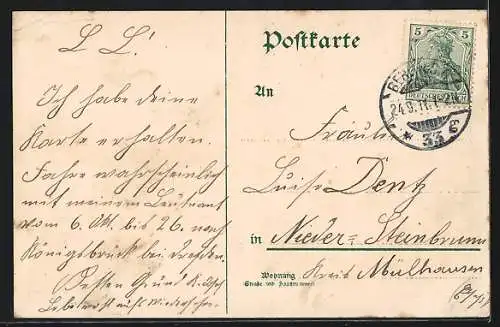 L L!
Ich habe deine
Karte erhalten.
Fahre wahrscheinlich
mit meinem Leutnant
vom 6. Okt. bis 26. nach
Königsbrück bei Dresden.
Besten Gruß
Lebewohl auf Wiedersehen
Postkarte
5 5
DEUTSCHES REICH
BERLIN
24.9.11.
* 33 g
An
Fräulein
Luise Dentz
in Nieder-Steinbrunn
Wohnung
Straße und Hausnummer
Kreis Mülhausen